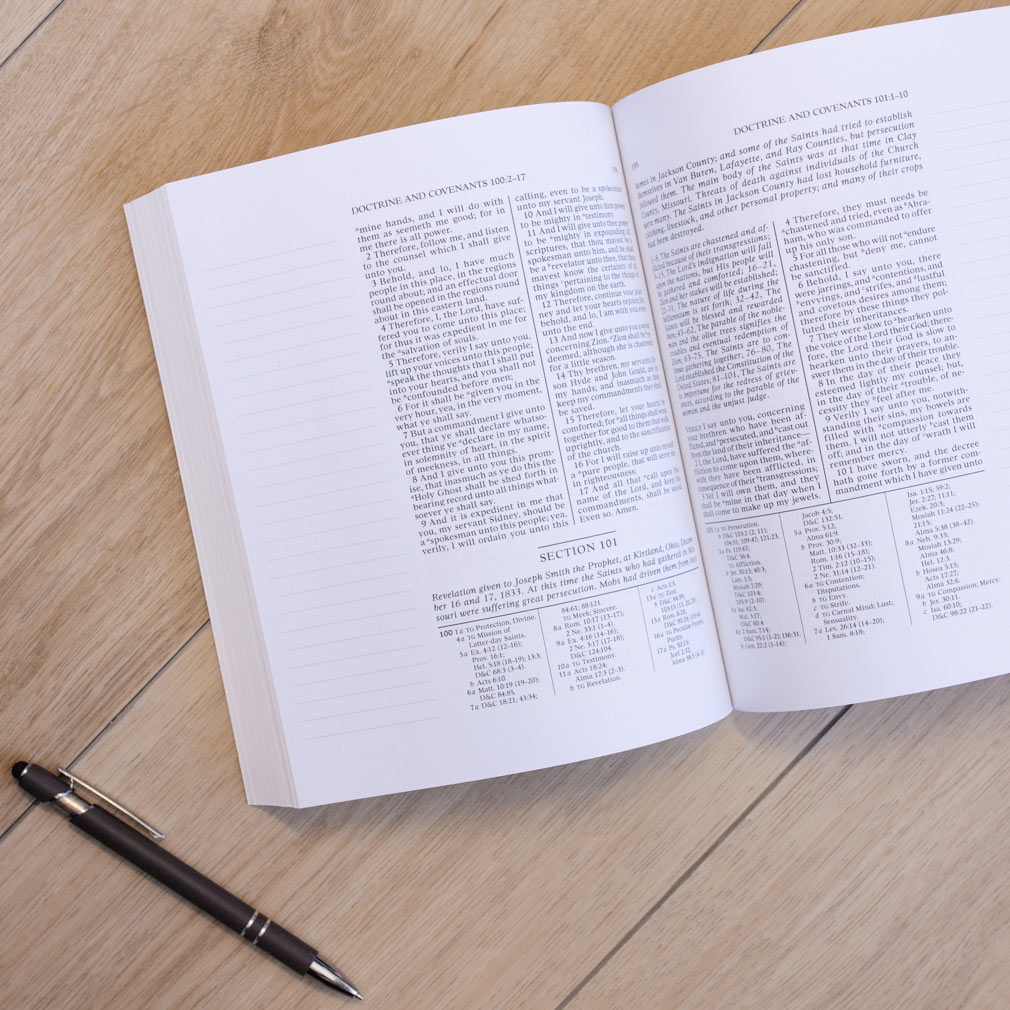 DOCTRINE AND COVENANTS 100:2–17
mine hands, and I will do with
them as seemeth me good; for in
me there is all power.
2 Therefore, follow me, and listen
to the counsel which I shall give
unto you.
3 Behold, and lo, I have much
people in this place, in the regions
round about; and an effectual door
shall be opened in the regions round
about in this eastern land.
4 Therefore, I, the Lord, have suf-
fered you to come unto this place;
for thus it was expedient in me for
the salvation of souls.
5 Therefore, verily I say unto you,
lift up your voices unto this people;
speak the thoughts that I shall put
into your hearts, and you shall not
be confounded before men;
6 For it shall be given you in the
very hour, yea, in the very moment,
what ye shall say.
7 But a commandment I give unto
you, that ye shall declare whatso-
ever thing ye declare in my name,
in solemnity of heart, in the spirit
of meekness, in all things.
8 And I give unto you this prom-
ise, that inasmuch as ye do this the
Holy Ghost shall be shed forth in
bearing record unto all things what-
soever ye shall say.
9 And it is expedient in me that
you, my servant Sidney, should be
a spokesman unto this people; yea,
verily, I will ordain you unto this
calling, even to be a spokesman
unto my servant Joseph.
10 And I will give unto him power
to be mighty in testimony.
11 And I will give unto thee power
to be mighty in expounding all
scriptures, that thou mayest be a
spokesman unto him, and he shall
be a revelator unto thee, that thou
mayest know the certainty of all
things pertaining to the things of
my kingdom on the earth.
12 Therefore, continue your jour-
ney and let your hearts rejoice; for
behold, and lo, I am with you even
unto the end.
13 And now I give unto you a word
concerning Zion. Zion shall be re-
deemed, although she is chastened
for a little season.
14 Thy brethren, my servants Or-
son Hyde and John Gould, are in
my hands; and inasmuch as they
keep my commandments they shall
be saved.
15 Therefore, let your hearts be
comforted; for all things shall work
together for good to them that walk
uprightly, and to the sanctification
of the church.
16 For I will raise up unto myself
a pure people, that will serve me
in righteousness;
17 And all that call upon the
name of the Lord, and keep his
commandments, shall be saved.
Even so. Amen.
SECTION 101
Revelation given to Joseph Smith the Prophet, at Kirtland, Ohio, Decem-
ber 16 and 17, 1833. At this time the Saints who had gathered in Mis-
souri were suffering great persecution. Mobs had driven them from their
100 1a TG Protection, Divine.
4a TG Mission of
Latter-day Saints.
5a Ex. 4:12 (12–16);
Prov. 16:1;
Hel. 5:18 (18–19); 13:3;
D&C 68:3 (3–4).
b Acts 6:10.
6a Matt. 10:19 (19–20);
D&C 84:85.
7a D&C 18:21; 43:34;
84:61; 88:121.
b TG Meek; Sincere.
8a Rom. 10:17 (13–17);
2 Ne. 33:1 (1–4).
9a Ex. 4:16 (14–16);
2 Ne. 3:17 (17–18);
D&C 124:104.
10a TG Testimony.
11a Acts 18:24;
Alma 17:3 (2–3).
b TG Revelation.
c Acts 1:3.
13a TG Zion.
b D&C 84:99;
15a Rom. 8:28;
16a TG Peculiar People;
Purity.
17a Ps. 50:15;
Joel 2:32;
DOCTRINE AND COVENANTS 101:1–10
homes in Jackson County; and some of the Saints had tried to establish
themselves in Van Buren, Lafayette, and Ray Counties, but persecution
followed them. The main body of the Saints was at that time in Clay
County, Missouri. Threats of death against individuals of the Church
were many. The Saints in Jackson County had lost household furniture,
clothing, livestock, and other personal property; and many of their crops
had been destroyed.
1–8, The Saints are chastened and af-
flicted because of their transgressions;
9–15, The Lord's indignation will fall
upon the nations, but His people will
be gathered and comforted; 16–21,
Zion and her stakes will be established;
22–31, The nature of life during the
Millennium is set forth; 32–42, The
Saints will be blessed and rewarded
then; 43–62, The parable of the noble-
man and the olive trees signifies the
troubles and eventual redemption of
Zion; 63–75, The Saints are to con-
tinue gathering together; 76–80, The
Lord established the Constitution of the
United States; 81–101, The Saints are
to importune for the redress of griev-
ances, according to the parable of the
woman and the unjust judge.
VERILY I say unto you, concerning
your brethren who have been af-
flicted, and persecuted, and cast out
from the land of their inheritance—
2 I, the Lord, have suffered the af-
fliction to come upon them, where-
with they have been afflicted, in
consequence of their transgressions;
3 Yet I will own them, and they
shall be mine in that day when I
shall come to make up my jewels.
4 Therefore, they must needs be
chastened and tried, even as Abra-
ham, who was commanded to offer
up his only son.
5 For all those who will not endure
chastening, but deny me, cannot
be sanctified.
6 Behold, I say unto you, there
were jarrings, and contentions, and
envyings, and strifes, and lustful
and covetous desires among them;
therefore by these things they pol-
luted their inheritances.
7 They were slow to hearken unto
the voice of the Lord their God; there-
fore, the Lord their God is slow to
hearken unto their prayers, to an-
swer them in the day of their trouble.
8 In the day of their peace they
esteemed lightly my counsel; but,
in the day of their trouble, of ne-
cessity they feel after me.
9 Verily I say unto you, notwith-
standing their sins, my bowels are
filled with compassion towards
them. I will not utterly cast them
off; and in the day of wrath I will
remember mercy.
10 I have sworn, and the decree
hath gone forth by a former com-
mandment which I have given unto
101 1a TG Persecution.
b D&C 103:2 (2, 11);
104:51; 109:47; 121:23.
2a Ps. 119:67;
D&C 58:4.
TG Affliction.
b Jer. 30:15; 40:3;
Lam. 1:5;
Mosiah 7:29;
D&C 103:4;
105:9 (2–10).
3a Isa. 62:3;
Mal. 3:17;
D&C 60:4.
4a 2 Sam. 7:14;
D&C 95:1 (1–2); 136:31.
b Gen. 22:2 (1–14);
Jacob 4:5;
D&C 132:51.
5a Prov. 5:12;
Alma 61:9.
b Prov. 30:9;
Matt. 10:33 (32–33);
Rom. 1:16 (15–18);
2 Tim. 2:12 (10–15);
2 Ne. 31:14 (12–21).
6a TG Contention;
Disputations.
b TG Envy.
c TG Strife.
d TG Carnal Mind; Lust;
Sensuality.
7a Lev. 26:14 (14–20);
1 Sam. 8:18;
Isa. 1:15; 59:2;
Jer. 2:27; 11:11;
Ezek. 20:3;
Mosiah 11:24 (22–25);
21:15;
Alma 5:38 (38–42).
8a Neh. 9:33;
Mosiah 13:29;
Alma 46:8;
Hel. 12:3.
b Hosea 5:15;
Acts 17:27;
Alma 32:6.
9a TG Compassion; Mercy.
b Jer. 30:11.
c Isa. 60:10;
D&C 98:22 (21–22).